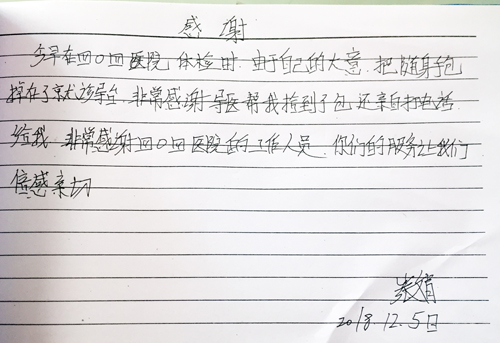 感谢
今早在四〇四医院体检时.由于自己的大意.把随身包
掉在了就诊导台.非常感谢导医帮我捡到了包.还亲自打电话
给我.非常感谢四〇四医院的工作人员.你们的服务让我们
倍感亲切
2018.12.5日